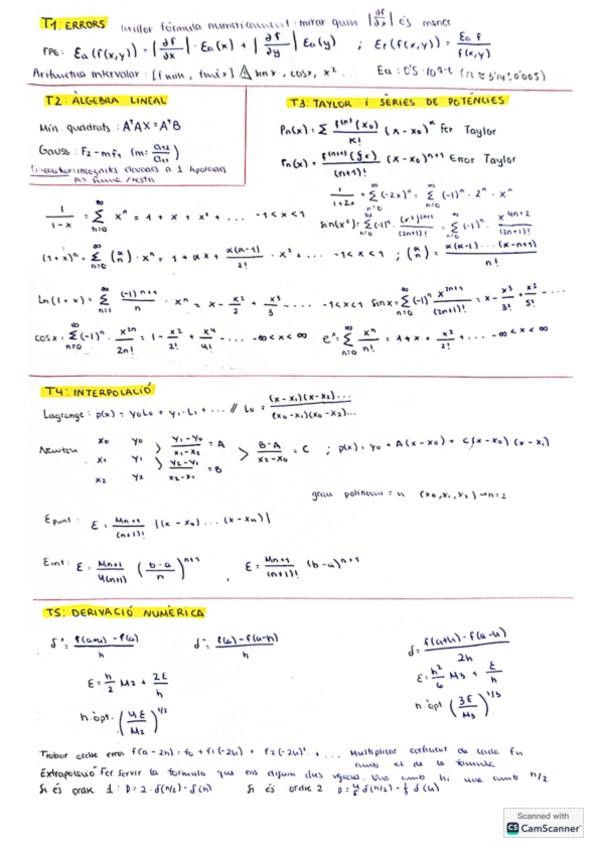 T1: ERRORS millor fórmula numèricament · mirar quin |∂f/∂x| és menor
FPE: Ea(f(x,y)) = |∂f/∂x| · Ea(x) + |∂f/∂y| Ea(y) ; Er(f(x,y)) = Ea f / f(x,y)
Aritmètica intervalar: [fmin, fmàx] ⚠ sinx, cosx, x² ...
T2: ÀLGEBRA LINEAL
Mín. quadrats: AᵀAX = AᵀB
Gauss: F2 - mF1 (m: a12/a11)
T3: TAYLOR I SÈRIES DE POTÈNCIES
Pn(x) = Σ f⁽ᴷ⁾(x0)/K! (x - x0)ᴷ Fer Taylor
rn(x) = f⁽ⁿ⁺¹⁾(ξx)/(n+1)! (x - x0)ⁿ⁺¹ Error Taylor
1/(1+2x) = Σ(-2x)ⁿ = Σ(-1)ⁿ · 2ⁿ · xⁿ
1/(1-x) = Σ xⁿ = 1 + x + x² + ... -1<x<1
sin(x²) = Σ(-1)ⁿ · (x²)²ⁿ⁺¹/(2n+1)! = Σ(-1)ⁿ · x⁴ⁿ⁺²/(2n+1)!
ln(1+x) = Σ (-1)ⁿ⁺¹/n · xⁿ = x - x²/2 + x³/3 ... -1<x<1 sinx = Σ(-1)ⁿ x²ⁿ⁺¹/(2n+1)! = x - x³/3! + x⁵/5! ...
cosx = Σ(-1)ⁿ · x²ⁿ/2n! = 1 - x²/2! + x⁴/4! ... -∞<x<∞ eˣ = Σ xⁿ/n! = 1 + x + x²/2! + ... -∞<x<∞
T4: INTERPOLACIÓ
Lagrange: p(x) = y0L0 + y1·L1 + ... // L0 = (x-x1)(x-x2)... / (x0-x1)(x0-x2)...
Newton x0 y0 (y1-y0)/(x1-x2) = A
x1 y1 (B-A)/(x2-x0) = C ; p(x) = y0 + A(x-x0) + C(x-x0)(x-x1)
x2 y2 (y2-y1)/(x2-x1) = B
grau polinomi = n (x0, x1, x2) → n=2
E punt: E = Mn+1/(n+1)! |(x-x0)...(x-xn)|
E int: E = Mn+1/4(n+1) ((b-a)/n)ⁿ⁺¹ , E = Mn+1/(n+1)! (b-a)ⁿ⁺¹
T5: DERIVACIÓ NUMÈRICA
δ⁺ = (f(a+h) - f(a))/h δ⁻ = (f(a) - f(a-h))/h δ = (f(a+h) - f(a-h))/2h
E = h/2 M2 + 2E/h E = h²/6 M3 + E/h
h òpt. (4E/M2)^1/2 h òpt (3E/M3)^1/3
Trobar ordre error f(a-2h) = f0 + f1(-2h) + f2(-2h)² + ... Multiplicar coeficient de cada fn
amb el de la fórmula
Extrapolació Fer servir la formula que ens diguin dues vegades. Una amb h i una amb h/2
Si és ordre 1: D = 2·δ(h/2) - δ(h) Si és ordre 2 D = 4/3 δ(h/2) - 1/3 δ(h)
Scanned with
CS CamScanner